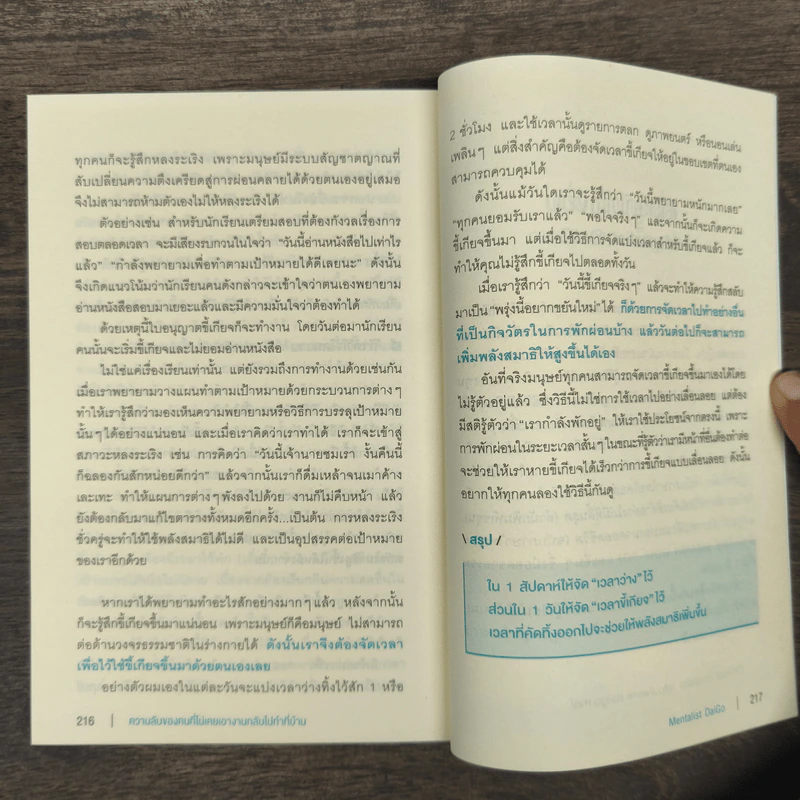 ทุกคนก็จะรู้สึกหลงระเริง เพราะมนุษย์มีระบบสัญชาตญาณที่
สับเปลี่ยนความตึงเครียดสู่การผ่อนคลายได้ด้วยตนเองอยู่เสมอ
จึงไม่สามารถห้ามตัวเองไม่ให้หลงระเริงได้
ตัวอย่างเช่น สำหรับนักเรียนเตรียมสอบที่ต้องกังวลเรื่องการ
สอบตลอดเวลา จะมีเสียงรบกวนในใจว่า “วันนี้อ่านหนังสือไปเท่าไร
แล้ว” “กำลังพยายามเพื่อทำตามเป้าหมายได้ดีเลยนะ” ดังนั้น
จึงเกิดแนวโน้มว่านักเรียนคนดังกล่าวจะเข้าใจว่าตนเองพยายาม
อ่านหนังสือสอบมาเยอะแล้วและมีความมั่นใจว่าต้องทำได้
ด้วยเหตุนี้ใบอนุญาตขี้เกียจก็จะทำงาน โดยวันต่อมานักเรียน
คนนั้นจะเริ่มขี้เกียจและไม่ยอมอ่านหนังสือ
ไม่ใช่แค่เรื่องเรียนเท่านั้น แต่ยังรวมถึงการทำงานด้วยเช่นกัน
เมื่อเราพยายามวางแผนทำตามเป้าหมายด้วยกระบวนการต่างๆ
ทำให้เรารู้สึกว่ามองเห็นความพยายามหรือวิธีการบรรลุเป้าหมาย
นั้นๆ ได้อย่างแน่นอน และเมื่อเราคิดว่าเราทำได้ เราก็จะเข้าสู่
สภาวะหลงระเริง เช่น การคิดว่า “วันนี้เจ้านายชมเรา งั้นคืนนี้
ก็ฉลองกันสักหน่อยดีกว่า” แล้วจากนั้นเราก็ดื่มเหล้าจนเมาค้าง
เละเทะ ทำให้แผนการต่างๆ พังลงไปด้วย งานก็ไม่คืบหน้า แล้ว
ยังต้องกลับมาแก้ไขตารางทั้งหมดอีกครั้ง...เป็นต้น การหลงระเริง
ชั่วครู่จะทำให้ใช้พลังสมาธิได้ไม่ดี และเป็นอุปสรรคต่อเป้าหมาย
ของเราอีกด้วย
หากเราได้พยายามทำอะไรสักอย่างมากๆ แล้ว หลังจากนั้น
ก็จะรู้สึกขี้เกียจขึ้นมาแน่นอน เพราะมนุษย์ก็คือมนุษย์ ไม่สามารถ
ต่อต้านวงจรธรรมชาติในร่างกายได้ ดังนั้นเราจึงต้องจัดเวลา
เพื่อไว้ใช้ขี้เกียจขึ้นมาด้วยตนเองเลย
อย่างตัวผมเองในแต่ละวันจะแบ่งเวลาว่างทิ้งไว้สัก 1 หรือ
216 | ความลับของคนที่ไม่เคยเอางานกลับไปทำที่บ้าน
2 ชั่วโมง และใช้เวลานั้นดูรายการตลก ดูภาพยนตร์ หรือนอนเล่น
เพลินๆ แต่สิ่งสำคัญคือต้องจัดเวลาขี้เกียจให้อยู่ในขอบเขตที่ตนเอง
สามารถควบคุมได้
ดังนั้นแม้วันใดเราจะรู้สึกว่า “วันนี้พยายามหนักมากเลย”
“ทุกคนยอมรับเราแล้ว” “พอใจจริงๆ” และจากนั้นก็จะเกิดความ
ขี้เกียจขึ้นมา แต่เมื่อใช้วิธีการจัดแบ่งเวลาสำหรับขี้เกียจแล้ว ก็จะ
ทำให้คุณไม่รู้สึกขี้เกียจไปตลอดทั้งวัน
เมื่อเรารู้สึกว่า “วันนี้ขี้เกียจจริงๆ” แล้วจะทำให้ความรู้สึกสลับ
มาเป็น “พรุ่งนี้อยากขยันใหม่” ได้ ก็ด้วยการจัดเวลาไปทำอย่างอื่น
ที่เป็นกิจวัตรในการพักผ่อนบ้าง แล้ววันต่อไปก็จะสามารถ
เพิ่มพลังสมาธิให้สูงขึ้นได้เอง
อันที่จริงมนุษย์ทุกคนสามารถจัดเวลาขี้เกียจขึ้นมาเองได้โดย
ไม่รู้ตัวอยู่แล้ว ซึ่งวิธีนี้ไม่ใช่การใช้เวลาไปอย่างเลื่อนลอย แต่ต้อง
มีสติรู้ตัวว่า “เรากำลังพักอยู่” ให้เราใช้ประโยชน์จากตรงนี้ เพราะ
การพักผ่อนในระยะเวลาสั้นๆ ในขณะที่รู้ตัวว่าเรามีหน้าที่อื่นต้องทำต่อ
จะช่วยให้เราหายขี้เกียจได้เร็วกว่าการขี้เกียจแบบเลื่อนลอย ดังนั้น
อยากให้ทุกคนลองใช้วิธีนี้กันดู
\ สรุป /
ใน 1 สัปดาห์ให้จัด “เวลาว่าง” ไว้
ส่วนใน 1 วันให้จัด “เวลาขี้เกียจ” ไว้
เวลาที่คัดทิ้งออกไปจะช่วยให้พลังสมาธิเพิ่มขึ้น
Mentalist DaiGo | 217